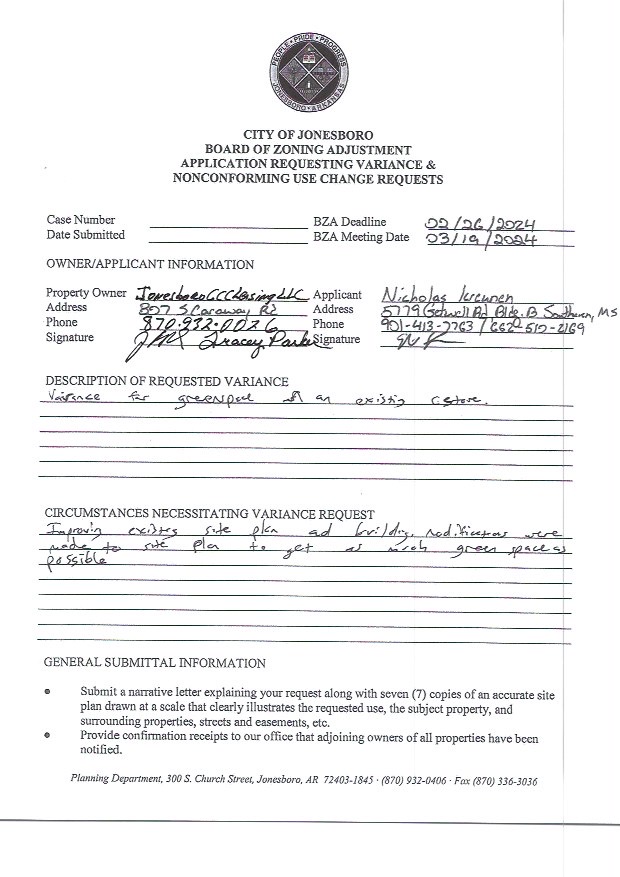 PEOPLE • PRIDE • PROGRESS
JONESBORO • ARKANSAS
CITY OF JONESBORO
BOARD OF ZONING ADJUSTMENT
APPLICATION REQUESTING VARIANCE &
NONCONFORMING USE CHANGE REQUESTS
Case Number BZA Deadline 02/26/2024
Date Submitted BZA Meeting Date 03/19/2024
OWNER/APPLICANT INFORMATION
Property Owner Jonesboro GCC Leasing LLC Applicant Nicholas
Address 807 S Caraway Rd Address 5779 Getwell Rd Bldg. B Southaven, MS
Phone 870.932.0026 Phone 901-413-7763 / 662-510-2169
Signature Tracey Parker Signature
DESCRIPTION OF REQUESTED VARIANCE
Variance for greenspace an existing cstore.
CIRCUMSTANCES NECESSITATING VARIANCE REQUEST
Improving existing site plan and building, modifications were
made to site plan to get as much green space as
possible
GENERAL SUBMITTAL INFORMATION
• Submit a narrative letter explaining your request along with seven (7) copies of an accurate site
plan drawn at a scale that clearly illustrates the requested use, the subject property, and
surrounding properties, streets and easements, etc.
• Provide confirmation receipts to our office that adjoining owners of all properties have been
notified.
Planning Department, 300 S. Church Street, Jonesboro, AR 72403-1845 · (870) 932-0406 · Fax (870) 336-3036